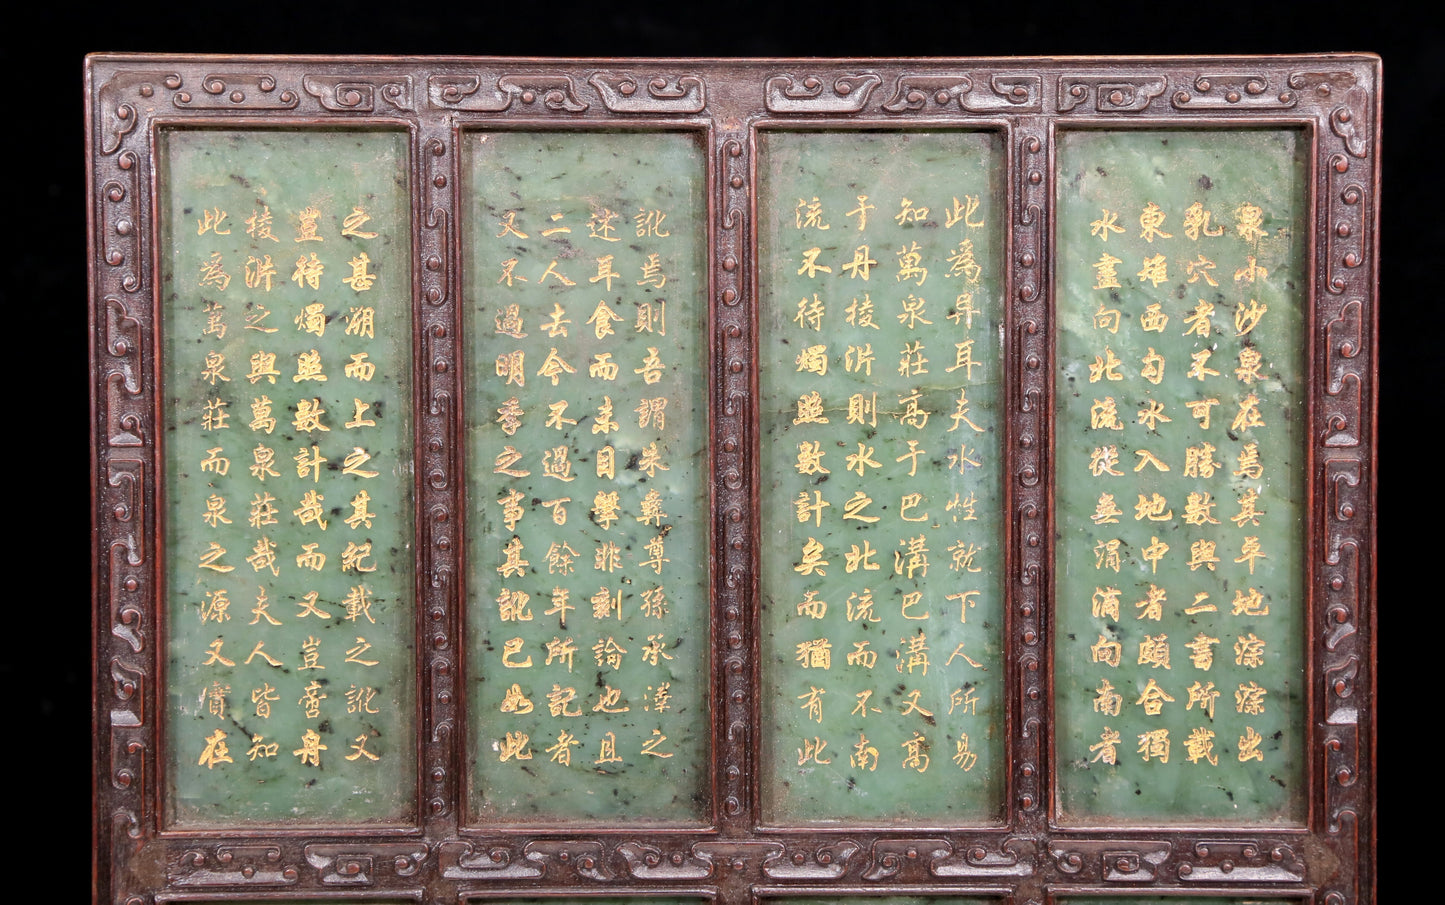 泉小沙泉在焉其平地淙淙出
乳穴者不可勝數與二書所載
東雉西勾水入地中者頗合獨
水盡向北流從無涓滴向南者
此為异耳夫水性就下人所易
知萬泉莊高于巴溝巴溝又高
于丹稜沜則水之北流而不南
流不待燭照數計矣而猶有此
訛焉則吾謂朱彝尊孫承澤之
述耳食而未目擊非刻論也且
二人去今不過百餘年所記者
又不過明季之事其訛已如此
之甚溯而上之其紀載之訛又
豈待燭照數計哉而又豈啻舟
稜沜之與萬泉莊哉夫人皆知
此為萬泉莊而泉之源又實在